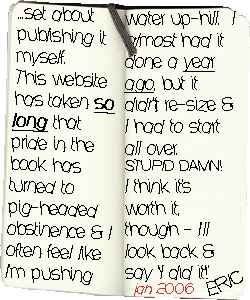 ...set about
publishing it
myself.
This website
has taken so
long that
pride in the
book has
turned to
pig-headed
obstinence & I
often feel like
I'm pushing
water up-hill. I
almost had it
done a year
ago, but it
didn't re-size &
I had to start
all over.
STUPID DAMN!
I think it's
worth it,
though - I'll
look back &
say 'I did it!'
jan 2006 ERIC